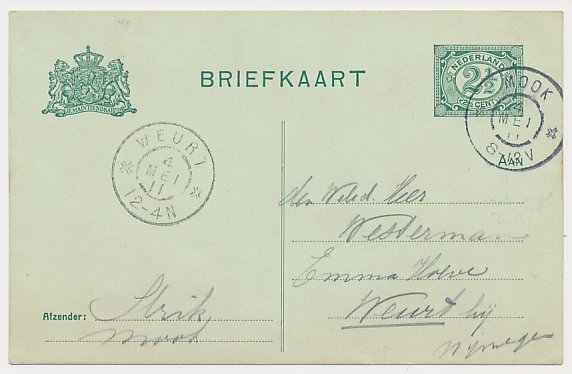 JE MAINTIENDRAI
BRIEFKAART
NEDERLAND
2½
CENT
MOOK
4
MEI
11
8-12V
AAN
WEURT
4
MEI
11
12-4N
den Weled. Heer
Westerman
Emma Hoeve
Weurt bij
Nijmegen
Afzender: Strik
Mook